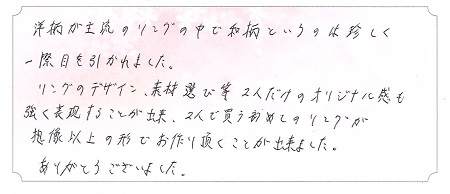 洋柄が主流のリングの中で和柄というのは珍しく
一際目を引かれました。
リングのデザイン、素材選び等2人だけのオリジナル感も
強く表現することが出来、2人で買う初めてのリングが
想像以上の形でお作り頂くことが出来ました。
ありがとうございました。